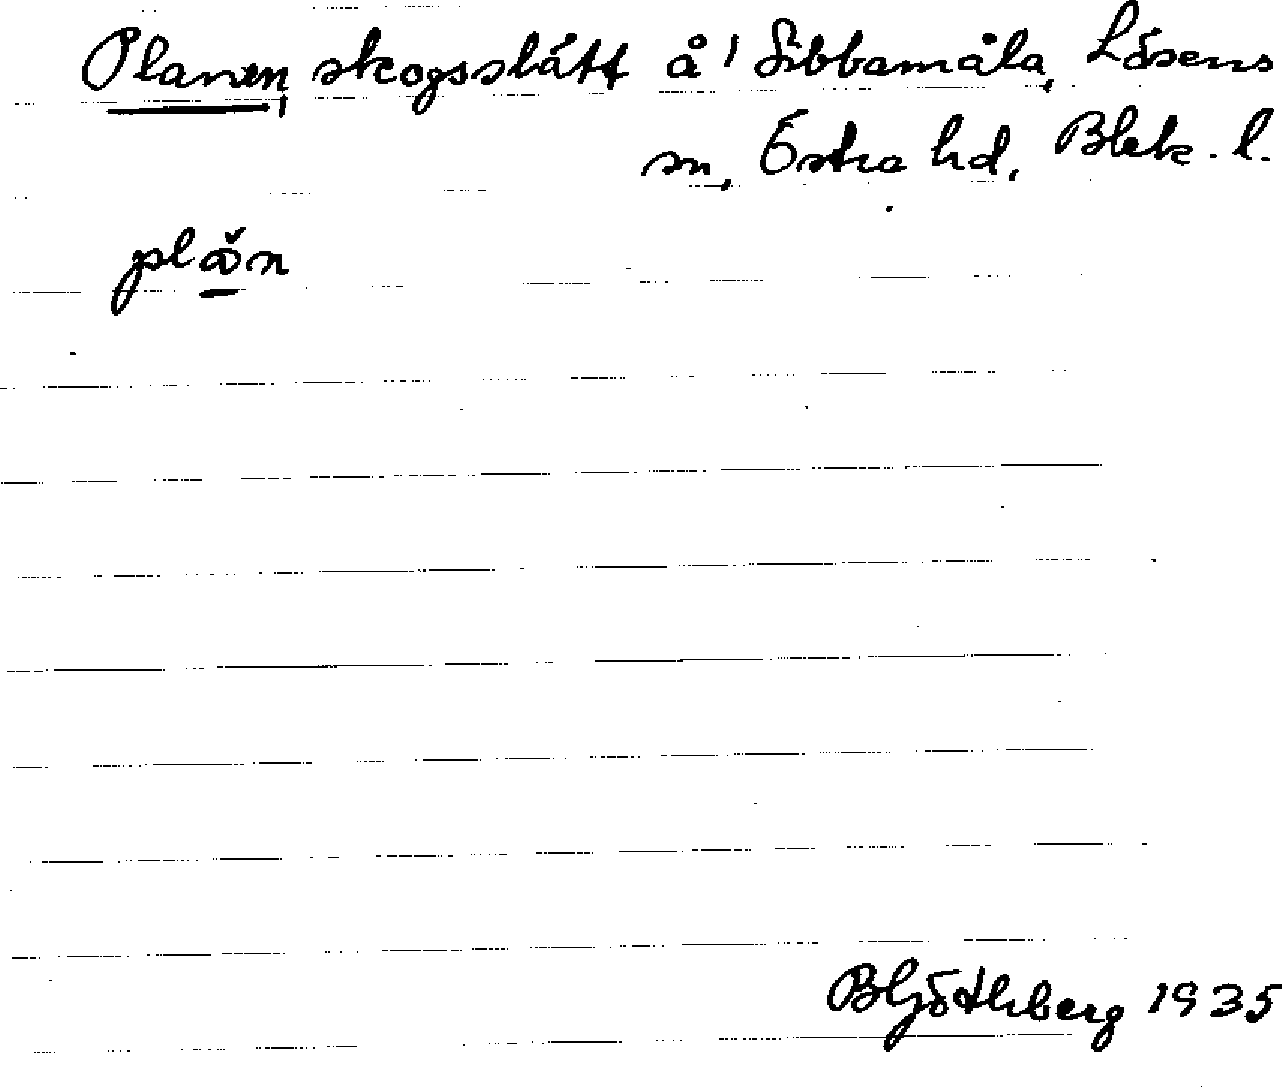 Planen, skogsslått å 1 Sibbamåla, Lösens
sn, Östra hd, Blek. l.
plån
BGöthberg 1935